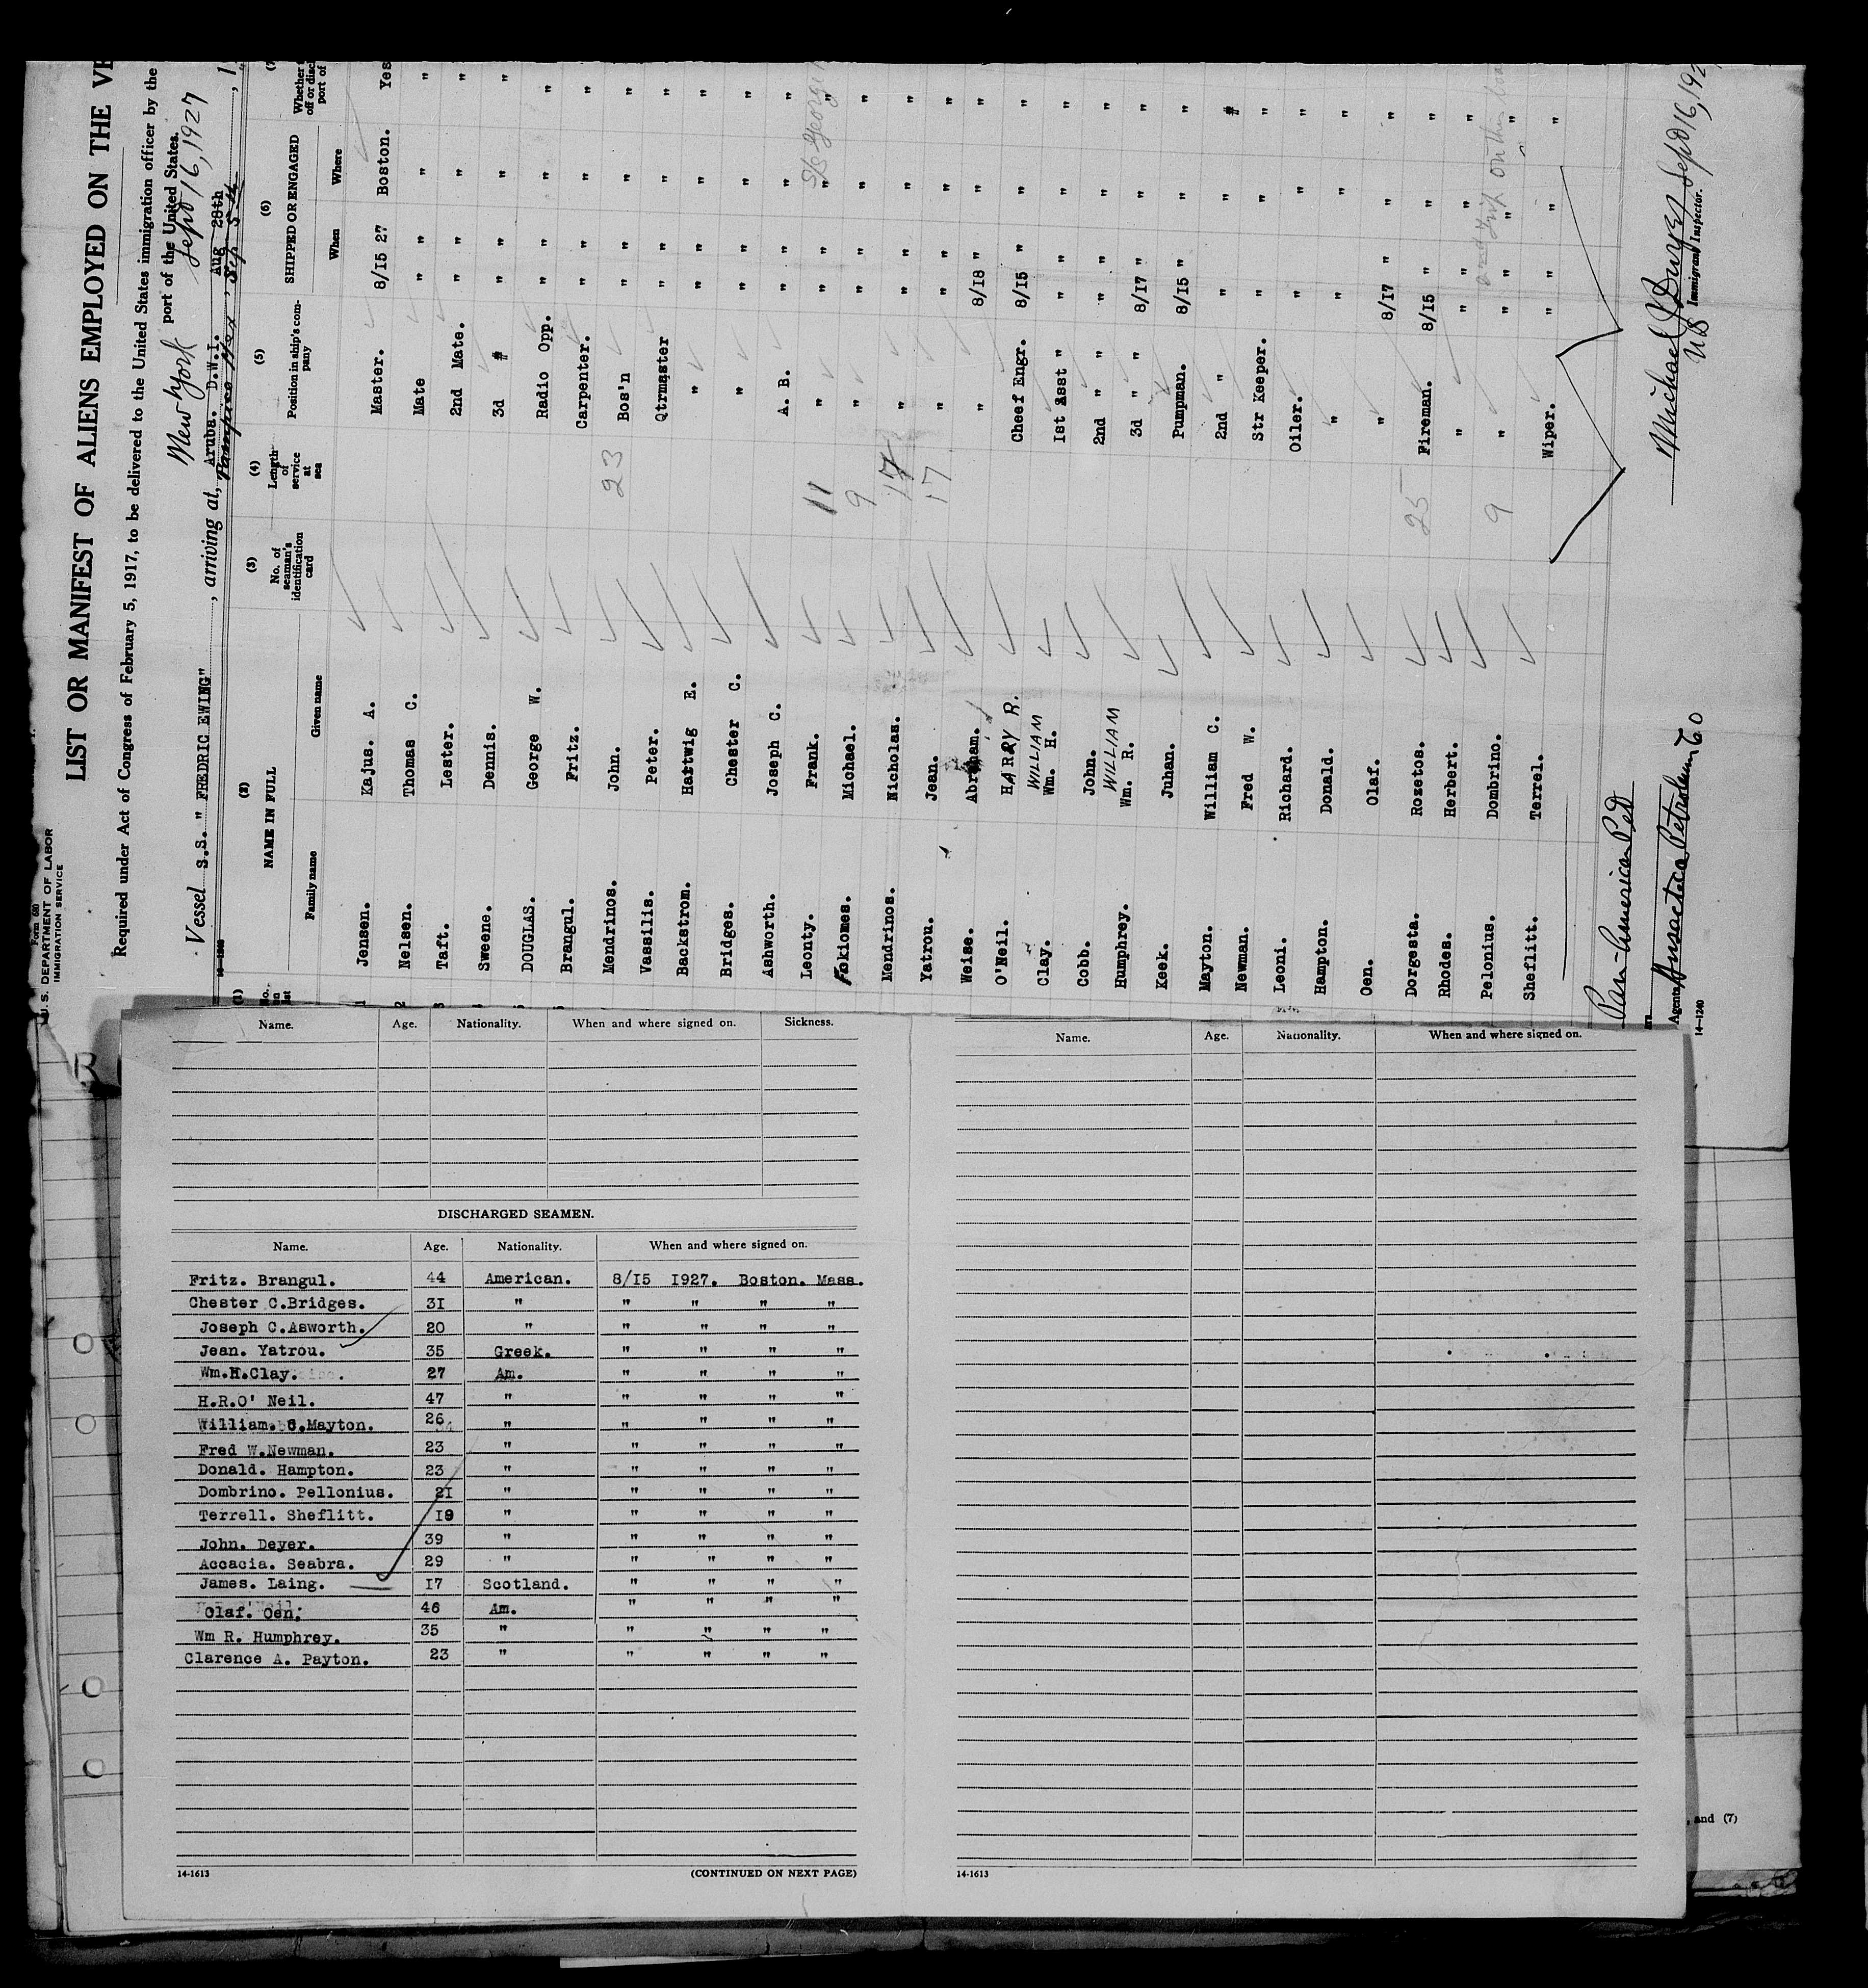 Form 680
U. S. DEPARTMENT OF LABOR
IMMIGRATION SERVICE
LIST OR MANIFEST OF ALIENS EMPLOYED ON THE VE
Required under Act of Congress of February 5, 1917, to be delivered to the United States immigration officer by the
port of the United States.
New York Sept 16, 1927
Vessel S.S. " FREDRIC EWING" , arriving at, Aruba. D.W.I. Aug 28th , 1
Tampico Mex, Sep 5th
(1) (2) (3) (4) (5) (6) (7
NAME IN FULL No. of seaman's identification card Length of service at sea Position in ship's company SHIPPED OR ENGAGED
Family name Given name When Where
1 Jensen. Kajus. A. Master. 8/15 27 Boston. Yes
2 Nelsen. Thomas C. Mate " " " "
3 Taft. Lester. 2nd Mate. " " " "
4 Sweene. Dennis. 3d # " " " "
5 DOUGLAS. George W. Radio Opp. " " " "
6 Brangul. Fritz. Carpenter. " " " "
Mendrinos. John. 23 Bos'n " " " "
Vassilis. Peter. Qtrmaster " " " "
Backstrom. Hartwig E. " " " " "
Bridges. Chester C. " " " " "
Ashworth. Joseph C. A. B. " " " "
Leonty. Frank. 11 " " " " "
Fokiomes. Michael. 9 " " " " "
Mendrinos. Nicholas. 17 " " " " "
Yatrou. Jean. 17 " " " " "
Weise. Abraham. " 8/18 " " "
O'Neil. HARRY R. Cheef Engr. 8/15 " " "
Clay. WILLIAM Wm. H. 1st Asst " " " " "
Cobb. John. 2nd " " " " " "
Humphrey. WILLIAM Wm. R. 3d " " 8/17 " " "
Keek. Juhan. Pumpman. 8/15 " " "
Mayton. William C. 2nd " " " #
Newman. Fred W. Str Keeper. " " "
Leoni. Richard. Oiler. " " "
Hampton. Donald. " " "
Oen. Olaf. " 8/17 " " "
Dorgesta. Rozetos. 25 Fireman. 8/15 " " "
Rhodes. Herbert. " " " " "
Pelonius. Dombrino. 9 " " " " "
Sheflitt. Terrel. Wiper. " " " "
Pan-American Pet
Agents Huasteca Petroleum Co
14—1240
Michael J Dwyer Sept 16, 192
US Immigrant Inspector.
Name. Age. Nationality. When and where signed on. Sickness.
DISCHARGED SEAMEN.
Name. Age. Nationality. When and where signed on.
Fritz. Brangul. 44 American. 8/15 1927. Boston. Mass.
Chester C.Bridges. 31 " " " " "
Joseph C.Asworth. 20 " " " " "
Jean. Yatrou. 35 Greek. " " " "
Wm.H.Clay. 27 Am. " " " "
H.R.O' Neil. 47 " " " " "
William. C.Mayton. 26 " " " " "
Fred W.Newman. 23 " " " " "
Donald. Hampton. 23 " " " " "
Dombrino. Pellonius. 21 " " " " "
Terrell. Sheflitt. 19 " " " " "
John. Deyer. 39 " " " " "
Accacia. Seabra. 29 " " " " "
James. Laing. 17 Scotland. " " " "
Olaf. Oen. 46 Am. " " " "
Wm R. Humphrey. 35 " " " " "
Clarence A. Payton. 23 " " " " "
14-1613 (CONTINUED ON NEXT PAGE)
Name. Age. Nationality. When and where signed on.
14-1613
, and (7)